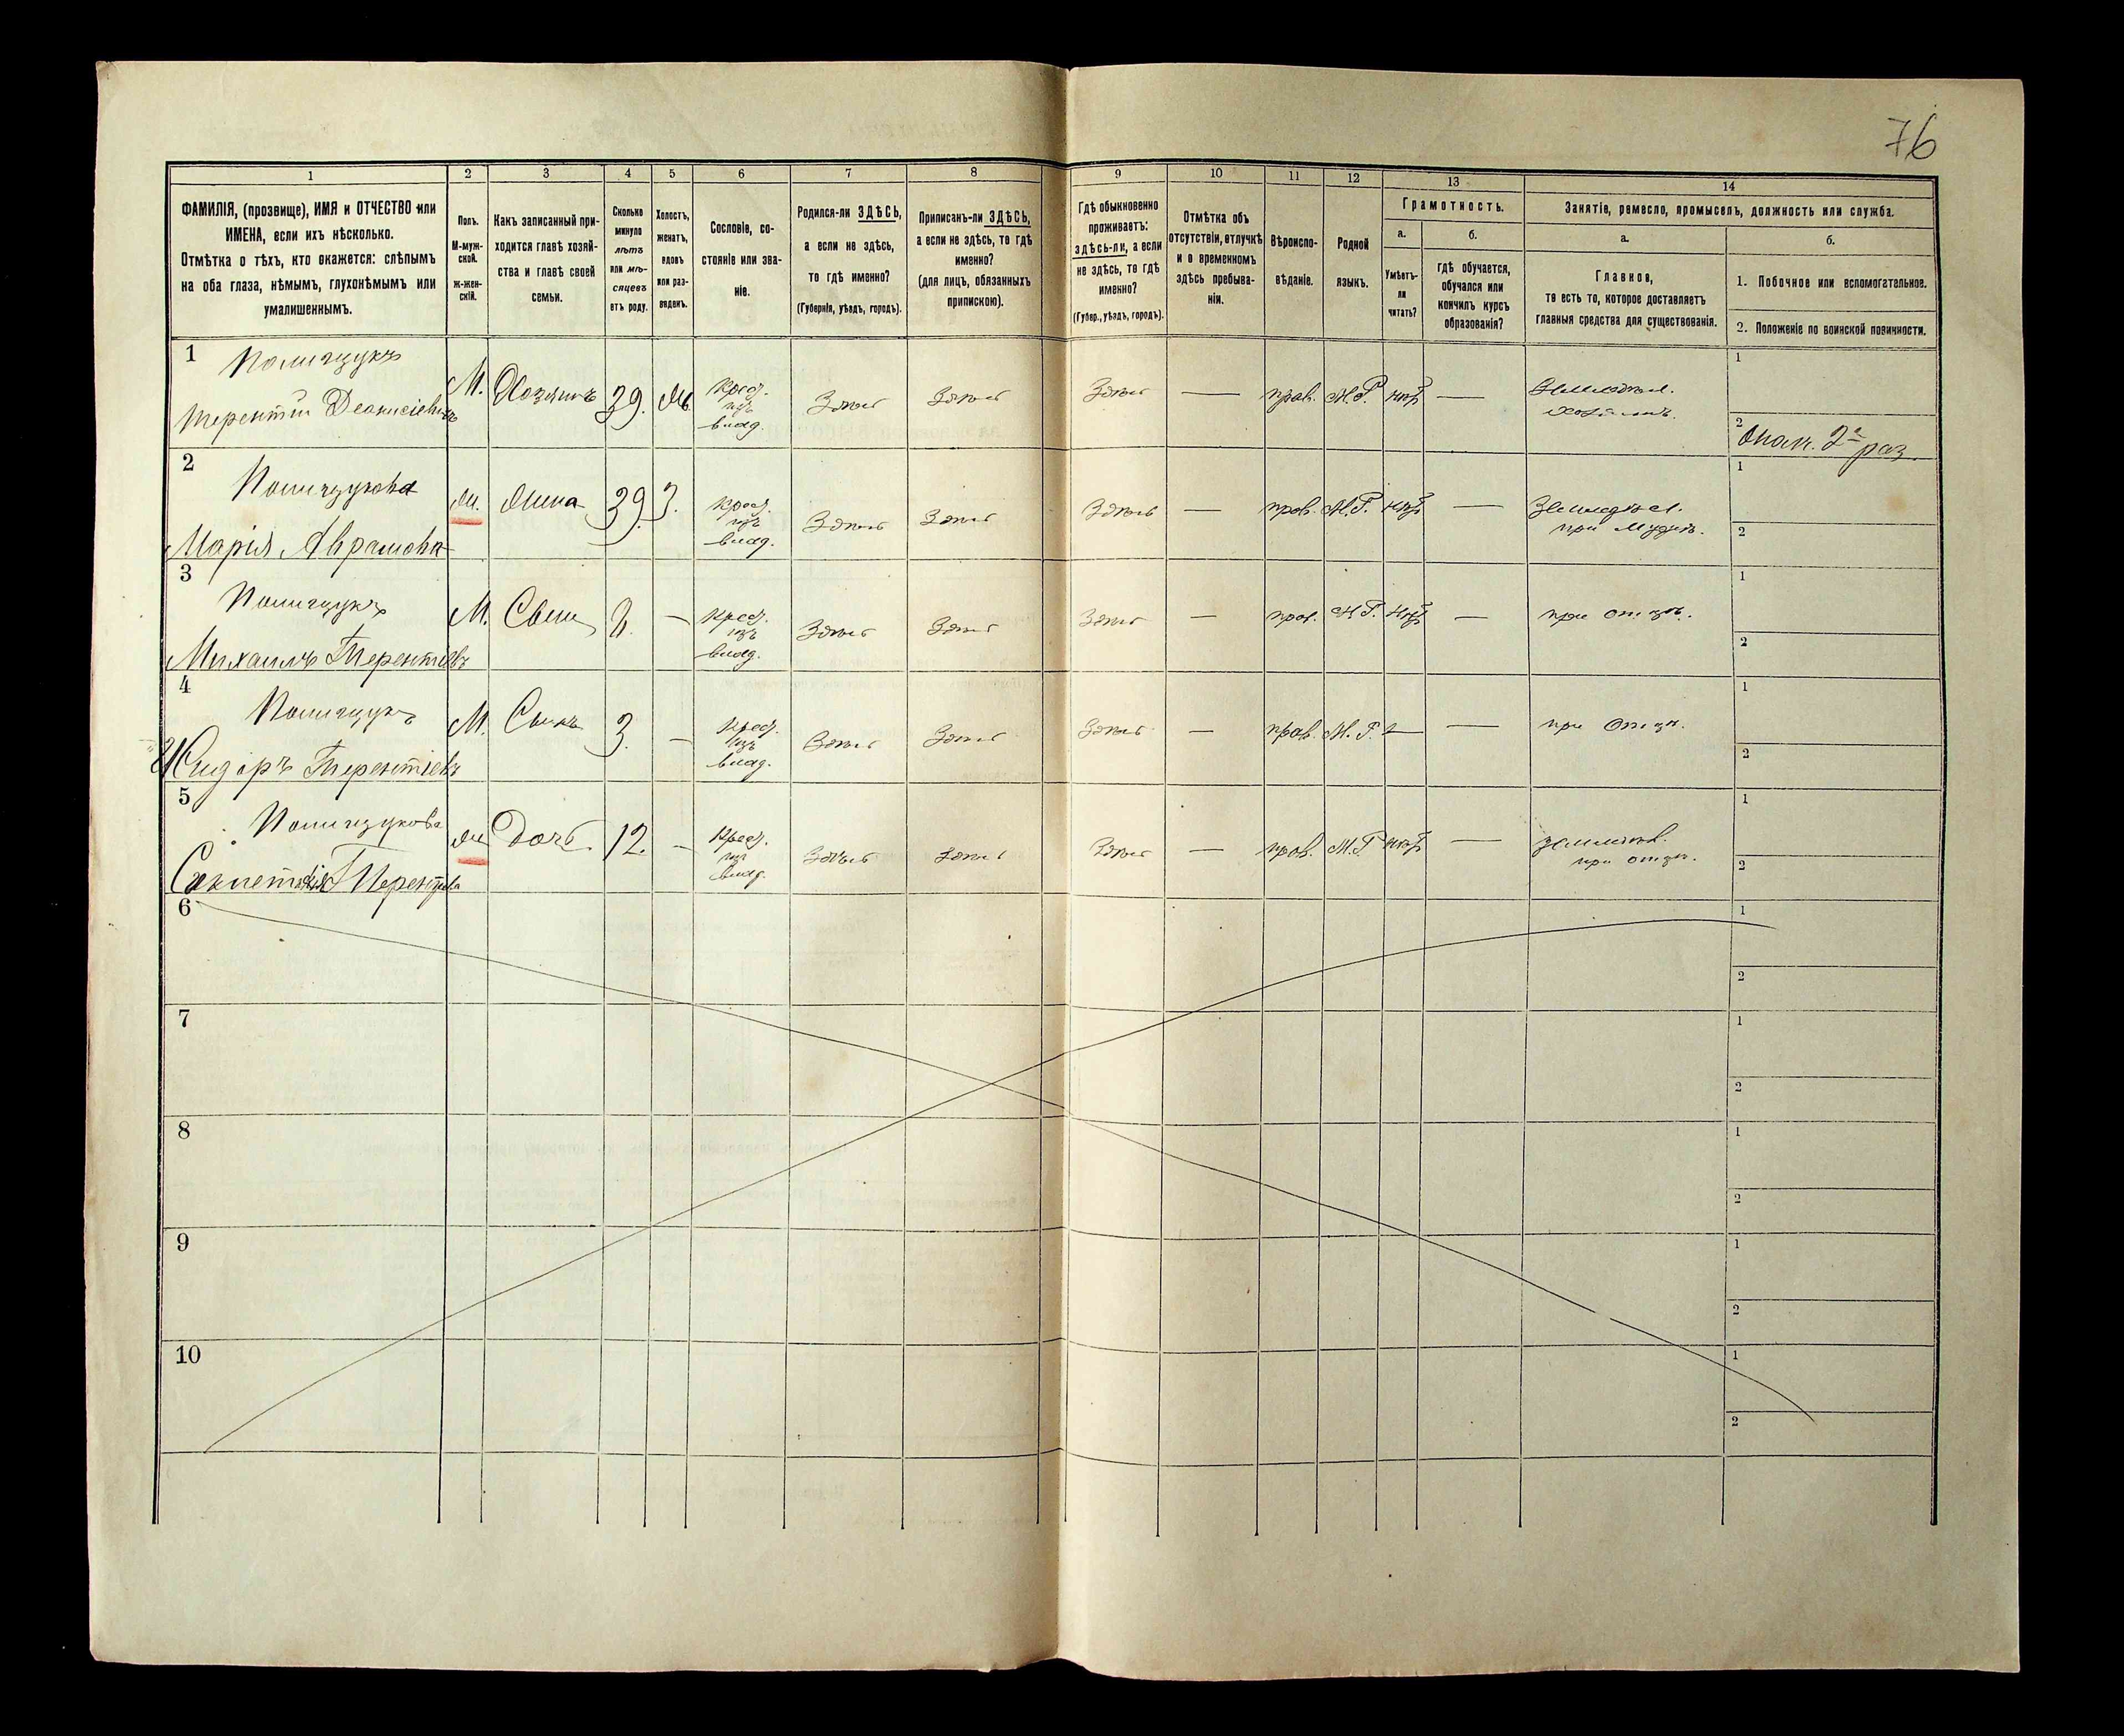 76
1
2
3
4
5
6
7
8
9
10
11
12
13
14
ФАМИЛІЯ, (прозвище), ИМЯ и ОТЧЕСТВО или
ИМЕНА, если ихъ нѣсколько.
Отмѣтка о тѣхъ, кто окажется: слѣпымъ
на оба глаза, нѣмымъ, глухонѣмымъ или
умалишеннымъ.
Полъ.
М-муж-
ской.
ж-жен-
скій.
Какъ записанный при-
ходится главѣ хозяй-
ства и главѣ своей
семьи.
Сколько
минуло
лѣтъ
или мѣ-
сяцевъ
отъ роду.
Холостъ,
женатъ,
вдовъ
или раз-
веденъ.
Сословіе, со-
стояніе или зва-
ніе.
Родился-ли ЗДѢСЬ,
а если не здѣсь,
то гдѣ именно?
(Губернія, уѣздъ, городъ).
Приписанъ-ли ЗДѢСЬ,
а если не здѣсь, то гдѣ
именно?
(для лицъ, обязанныхъ
припискою).
Гдѣ обыкновенно
проживаетъ:
здѣсь-ли, а если
не здѣсь, то гдѣ
именно?
(Губер., уѣздъ, городъ).
Отмѣтка объ
отсутствіи, отлучкѣ
и о временномъ
здѣсь пребыва-
ніи.
Вѣроиспо-
вѣданіе.
Родной
языкъ.
Грамотность.
а.
Умѣетъ-
ли
читать?
б.
гдѣ обучается,
обучался или
кончилъ курсъ
образованія?
Занятіе, ремесло, промыселъ, должность или служба.
а.
Главное,
то есть то, которое доставляетъ
главныя средства для существованія.
б.
1. Побочное или вспомогательное.
2. Положеніе по воинской повинности.
1
Полищукъ
Терентій Деонисіевичъ
М. Хозяинъ 39.
Крест.
изъ
влад.
Здѣсь Здѣсь Здѣсь — прав. М.Р. нѣтъ —
Земледѣл.
хозяинъ.
1
2
Опол. 2го раз.
2
Полищукова
Марія Аврамова
ж. Жена 39 З.
Крест.
изъ
влад.
Здѣсь Здѣсь Здѣсь — прав. М.Р. нѣтъ —
Земледѣл.
при мужѣ.
1
2
3
Полищукъ
Михаилъ Терентіевъ
М. Сынъ 8. —
Крест.
изъ
влад.
Здѣсь Здѣсь Здѣсь — прав. М.Р. нѣтъ — при отцѣ.
1
2
4
Полищукъ
Сидоръ Терентіевъ
М. Сынъ 3. —
Крест.
изъ
влад.
Здѣсь Здѣсь Здѣсь — прав. М.Р. — — при отцѣ.
1
2
5
Полищукова
Терентіева
ж. Дочь. 12. —
Крест.
изъ
влад.
Здѣсь Здѣсь Здѣсь — прав. М.Р. нѣтъ —
земледѣл.
при отцѣ.
1
2
6
1
2
7
1
2
8
1
2
9
1
2
10
1
2